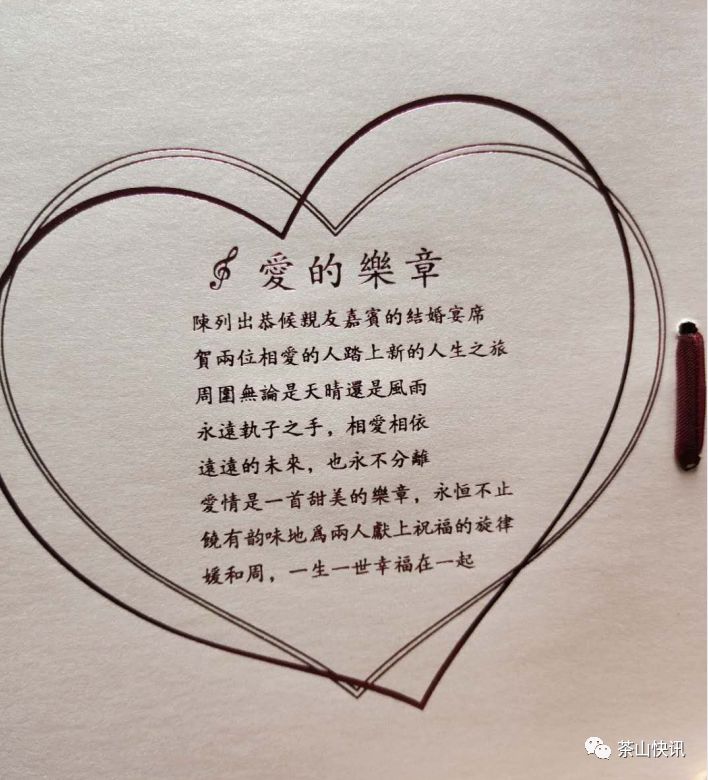 愛的樂章
陳列出恭候親友嘉賓的結婚宴席
賀兩位相愛的人踏上新的人生之旅
周圍無論是天晴還是風雨
永遠執子之手，相愛相依
遠遠的未來，也永不分離
愛情是一首甜美的樂章，永恒不止
饒有韵味地爲兩人獻上祝福的旋律
媛和周，一生一世幸福在一起
茶山快讯